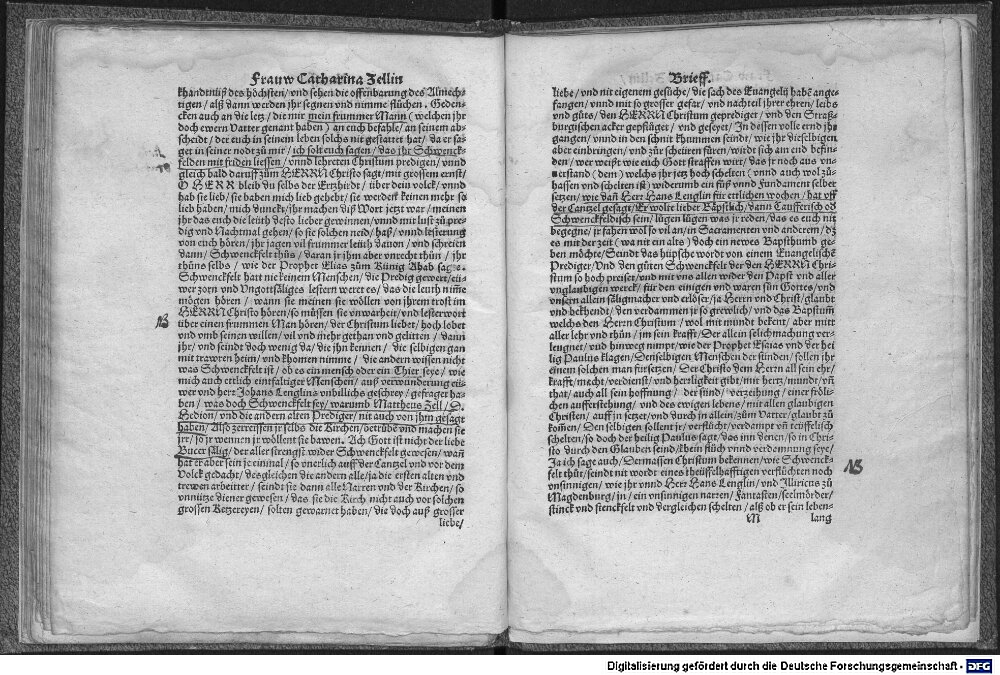 Frauw Catharina Zellin
khandtniß des höchsten/ vnd sehen die offenbarung des Almech-
tigen/ alß dann werden jhr segnen vnd nimme flůchen. Geden-
cken auch an die letz/ die mir mein frummer Mann (welchen jhr
doch ewern Vatter genant haben) an euch befahle/ an seinem ab-
scheidt/ der euch in seinem leben solchs nit gestattet hat/ da er sa-
get in seiner nodt zů mir/ ich solt euch sagen/ das jhr Schwenck-
felden mit friden liessen/ vnnd lehreten Christum predigen/ vnnd
gleich bald darauff zům HERRN Christo sagt/ mit grossem ernst/
O HERR bleib du selbs der Ertzhirdt/ über dein volck/ vnnd
hab sie lieb/ sie haben mich lieb gehebt/ sie werden keinen mehr so
lieb haben/ mich dunckt/ jhr machen diß Wort jetzt war/ meinen
jhr das euch die leüth desto lieber gewinnen/ vnnd mit lust zů pre-
dig vnd Nachtmal gehen/ so sie solchen neid/ haß/ vnnd lesterung
von euch hören/ jhr jagen vil frummer leüth dauon/ vnd schreien
dann/ Schwenckfelt thůs/ daran jr jhm aber vnrecht thůn/ jhr
thůns selbs/ wie der Prophet Elias zům Künig Ahab sagt.
Schwenckfelt hatt nie keinem Menschen/ die Predig gewert/ eü-
wer zorn vnd Vngottsäliges lestern weret es/ das die leuth nim̃e
mögen hören/ wann sie meinen sie wöllen von jhrem trost im
HERRN Christo hören/ so můssen sie vnwarheit/ vnd lesterwort
über einen frummen Man hören/ der Christum liebet/ hoch lobet
vnd vmb seinen willen/ vil vnd mehr gethan vnd gelitten/ dann
jhr/ vnd seindt doch wenig da/ die jhn kennen/ die selbigen gan
mit trawren heim/ vnd khomen nimme/ die andern wissen nicht
was Schwenckfelt ist/ ob es ein mensch oder ein Thier seye/ wie
mich auch ettlich einfaltiger Menschen/ auß verwunderung eü-
wer vnd herr Johans Lenglins vnbillichs geschrey/ gefraget ha-
ben/ was doch Schwenckfelt sey/ warumb Mattheus Zell/ D.
Hedion/ vnd die andern alten Prediger/ nit auch von jhm gesagt
haben/ Also zerreissen jr selbs die Kirchen/ betrůben vnd machen sie
jrr/ so jr wennen jr wöllent sie bawen. Ach Gott ist nicht der liebe
Bucer sälig/ der aller strengst wider Schwenckfelt gewesen/ wañ
hat er aber sein je einmal/ so vnerlich auff der Cantzel vnd vor dem
Volck gedacht/ desgleichen die andern alle/ ja die ersten alten vnd
trewen arbeitter/ seindt sie dann alle Narren vnd der Kirchen/ so
vnnütze diener gewesen/ das sie die Kirch nicht auch vor solchen
grossen Ketzereyen/ solten gewarnet haben/ die doch auß grosser
liebe/
NB
Brieff.
liebe/ vnd nit eigenem gesůche/ die sach des Euangelij habẽ ange-
fangen/ vnnd mit so grosser gefar/ vnd nachteil jhrer ehren/ leibs
vnd gůts/ den HERRN Christum geprediget/ vnd den Straß-
burgischen acker gepflüget/ vnd geseyet/ In dessen volle ernd jhr
gangen/ vnnd in den schnit khummen seindt/ wie jhr dieselbigen
aber einbringen/ vnd zůr scheüren füren/ wirdt sich am end befin-
den/ wer weißt wie euch Gott straffen wirt/ das jr noch aus vn-
uerstand (dem) welchs jhr jetz hoch schelten (vnnd auch wol zů-
hassen vnd schelten ist) widerumb ein fůß vnnd Fundament selber
setzen/ wie dañ Herr Hans Lenglin für ettlichen wochen/ hat off
der Cantzel gesagt/ Er wolte lieber Bäpstlich/ dann Taufferisch od
Schwenckfeldisch sein/ lůgen lůgen was jr reden/ das es euch nit
begegne/ jr fahen wol so vil an/ in Sacramenten vnd anderem/ dz
es mit der zeit (wa nit ein alts) doch ein newes Bapsthumb ge-
ben möchte/ Seindt das hüpsche wordt von einem Euangelischẽ
Prediger/ Vnd den gůten Schwenckfelt der den HERRN Chri-
stum so hoch preiset/ vnd mit vns allen wider den Papst vnd aller
vnglaubigen werck/ für den einigen vnd waren sůn Gottes/ vnd
vnsern allein säligmacher vnd erlöser/ ja Herrn vnd Christ/ glaubt
vnd bekhendt/ den verdammen jr so grewlich/ vnd das Bapstum̃
welchs den Herrn Christum/ wol mit mundt bekent/ aber mitt
aller lehr vnd thůn/ jm sein krafft/ Der allein selichmachung ver-
leugnet/ vnd hinweg nimpt/ wie der Prophet Esaias vnd der hei-
lig Paulus klagen/ Denselbigen Menschen der sünden/ sollen jhr
einem solchen man fürsetzen/ Der Christo dem Herrn all sein ehr/
krafft/ macht/ verdienst/ vnd herligkeit gibt/ mit hertz/ mund/ vñ
that/ auch all sein hoffnung/ der sünd/ verzeihung/ einer frölli-
chen aufferstehung/ vnd des ewigen lebens/ mit allen glaubigen
Christen/ auff jn setzet/ vnd durch in allein/ zům Vatter/ glaubt zů
kom̃en/ Den selbigen sollent jr/ verflůcht/ verdampt vñ teüffelisch
schelten/ so doch der heilig Paulus sagt/ das inn denen/ so in Chri-
sto durch den Glauben seind/ khein flůch vnnd verdamnung seye/
Ja ich sage auch/ Dermassen Christum bekennen/ wie Schwenck-
felt thůt/ seindt nit wordt eines theüffelhafftigen verflůchten noch
vnsinnigen/ wie jhr vnnd Herr Hans Lenglin/ vnd Illiricus zů
Magdenburg/ jn/ ein vnsinnigen narren/ Fantasten/ seelmörder/
stinck vnd stenckfelt vnd vergleichen schelten/ alß ob er sein leben-
M lang
NB
Digitalisierung gefördert durch die Deutsche Forschungsgemeinschaft - DFG